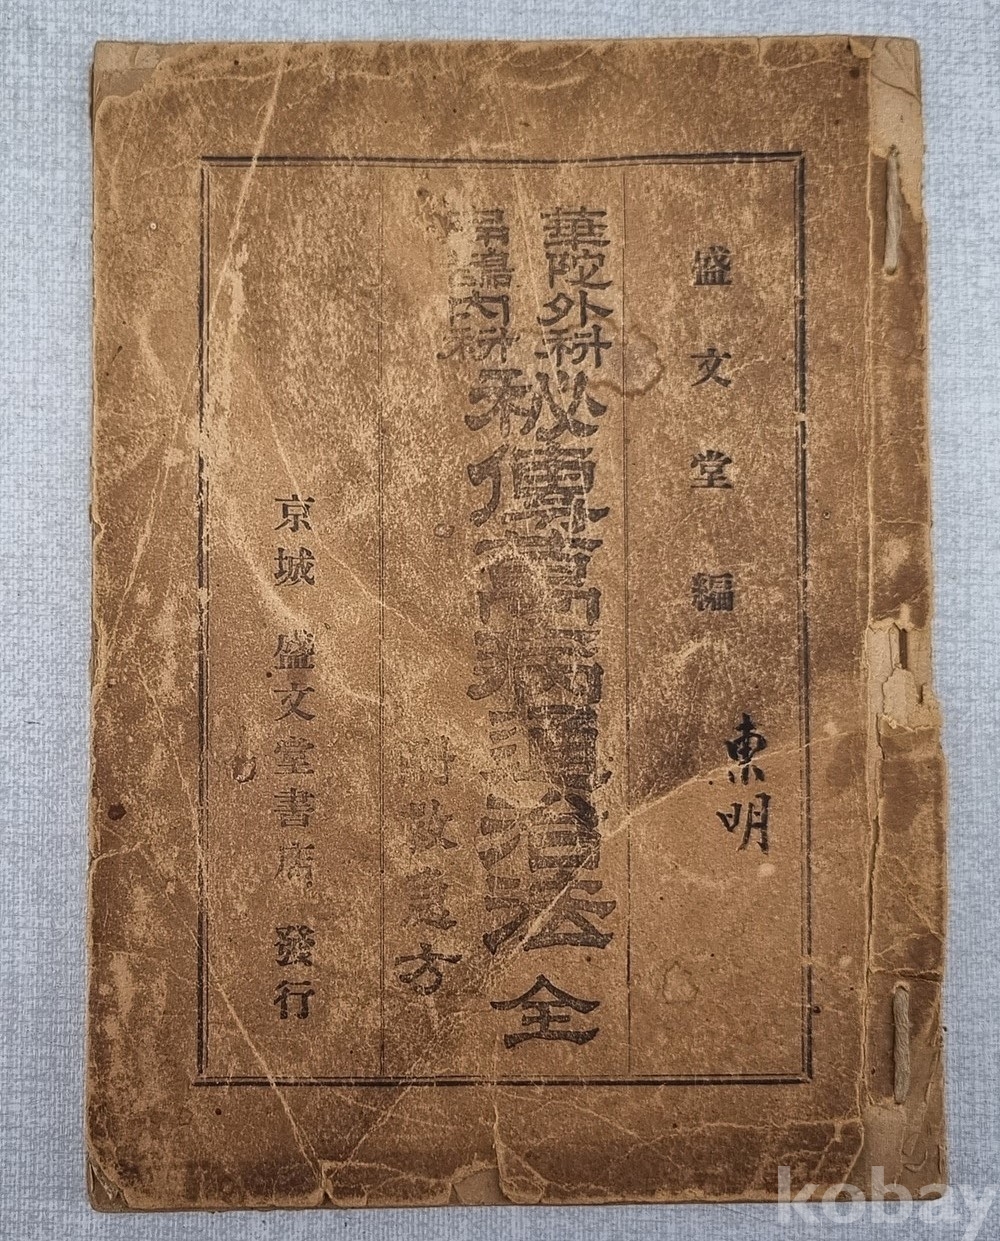 盛文堂編
東明
華陀外科
扁鵲內科
秘傳萬病通治法 全
附救急方
京城 盛文堂書店 發行
kobay